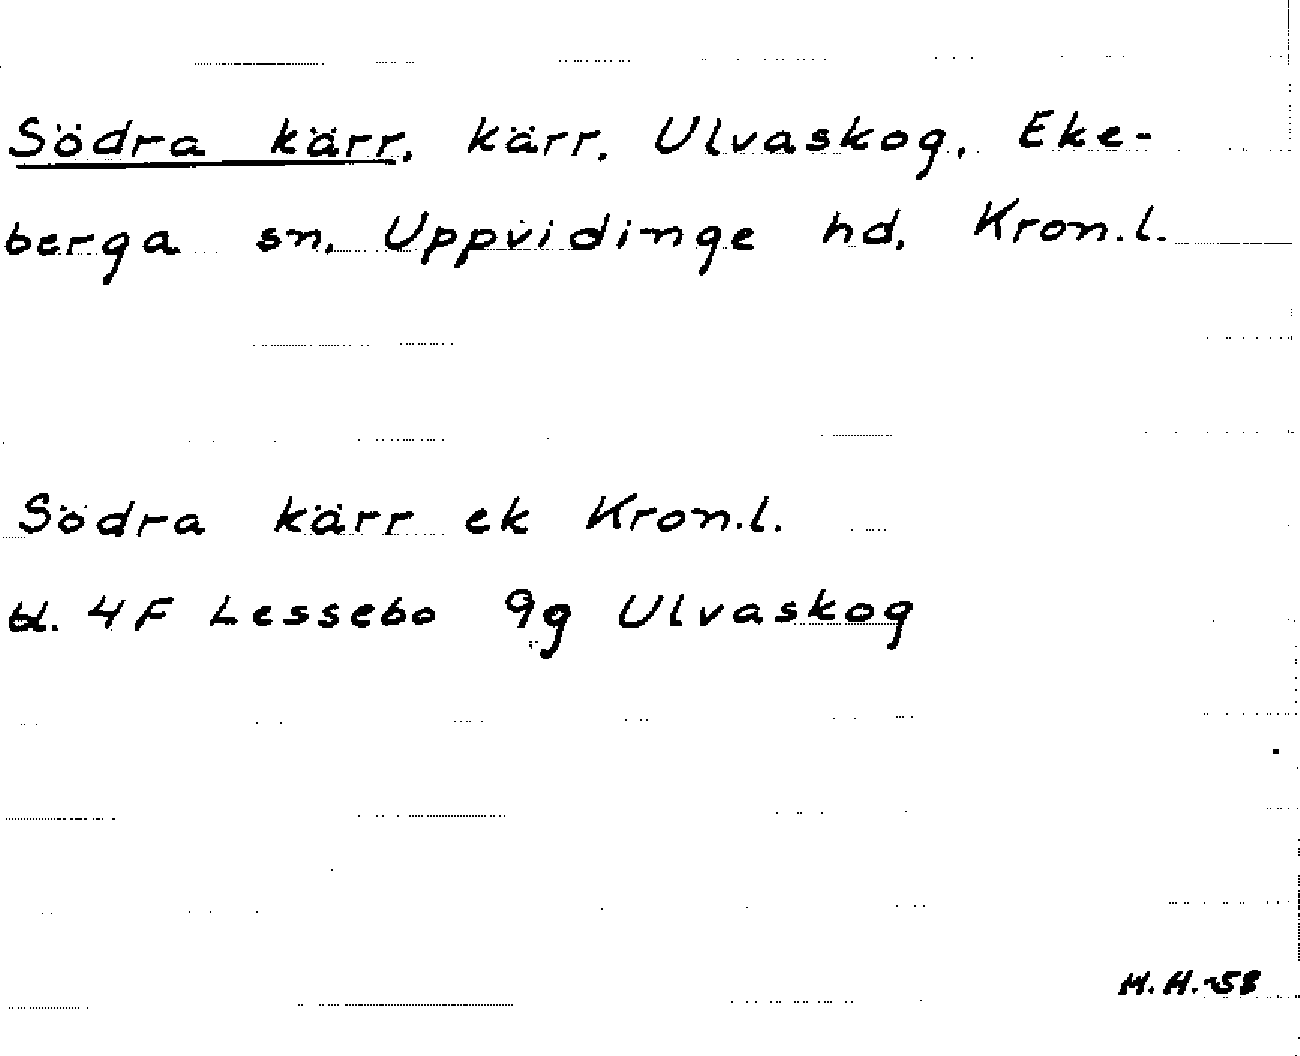 Södra kärr, kärr, Ulvaskog, Eke-
berga sn, Uppvidinge hd, Kron.l.
Södra kärr ek Kron.l.
bl. 4F Lessebo 9g Ulvaskog
M.H.-58